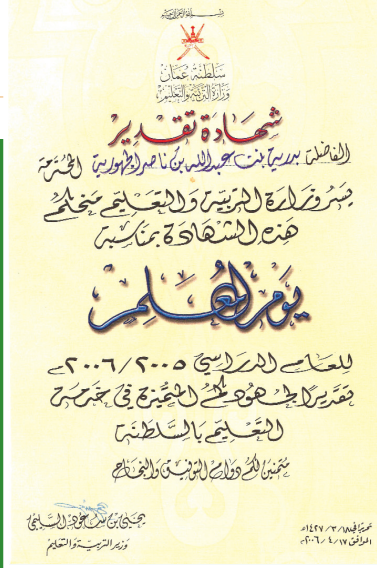 بسم الله الرحمن الرحيم
سلطنة عمان
وزارة التربية والتعليم
شهادة تقدير
الفاضلة بدرية بنت عبدالله بن ناصر الجهورية المحترمة
يسر وزارة التربية والتعليم منحكم
هذه الشهادة بمناسبة
يوم المعلم
للعام الدراسي ٢٠٠٥/٢٠٠٦م
تقديرًا لجهودكم المتميزة في خدمة
التعليم بالسلطنة
متمنين لكم دوام التوفيق والنجاح
يحيى بن سعود السليمي
وزير التربية والتعليم
تحريرًا في ١٨/٣/١٤٢٧هـ
الموافق ١٧/٤/٢٠٠٦م